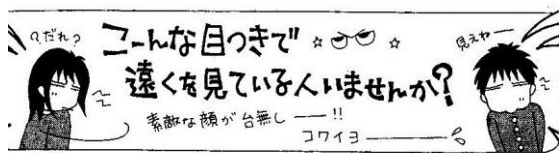 ?だれ?
こーんな目つきで
遠くを見ている人いませんか?
素敵な顔が台無し——!!
コワイヨ——
見えねー